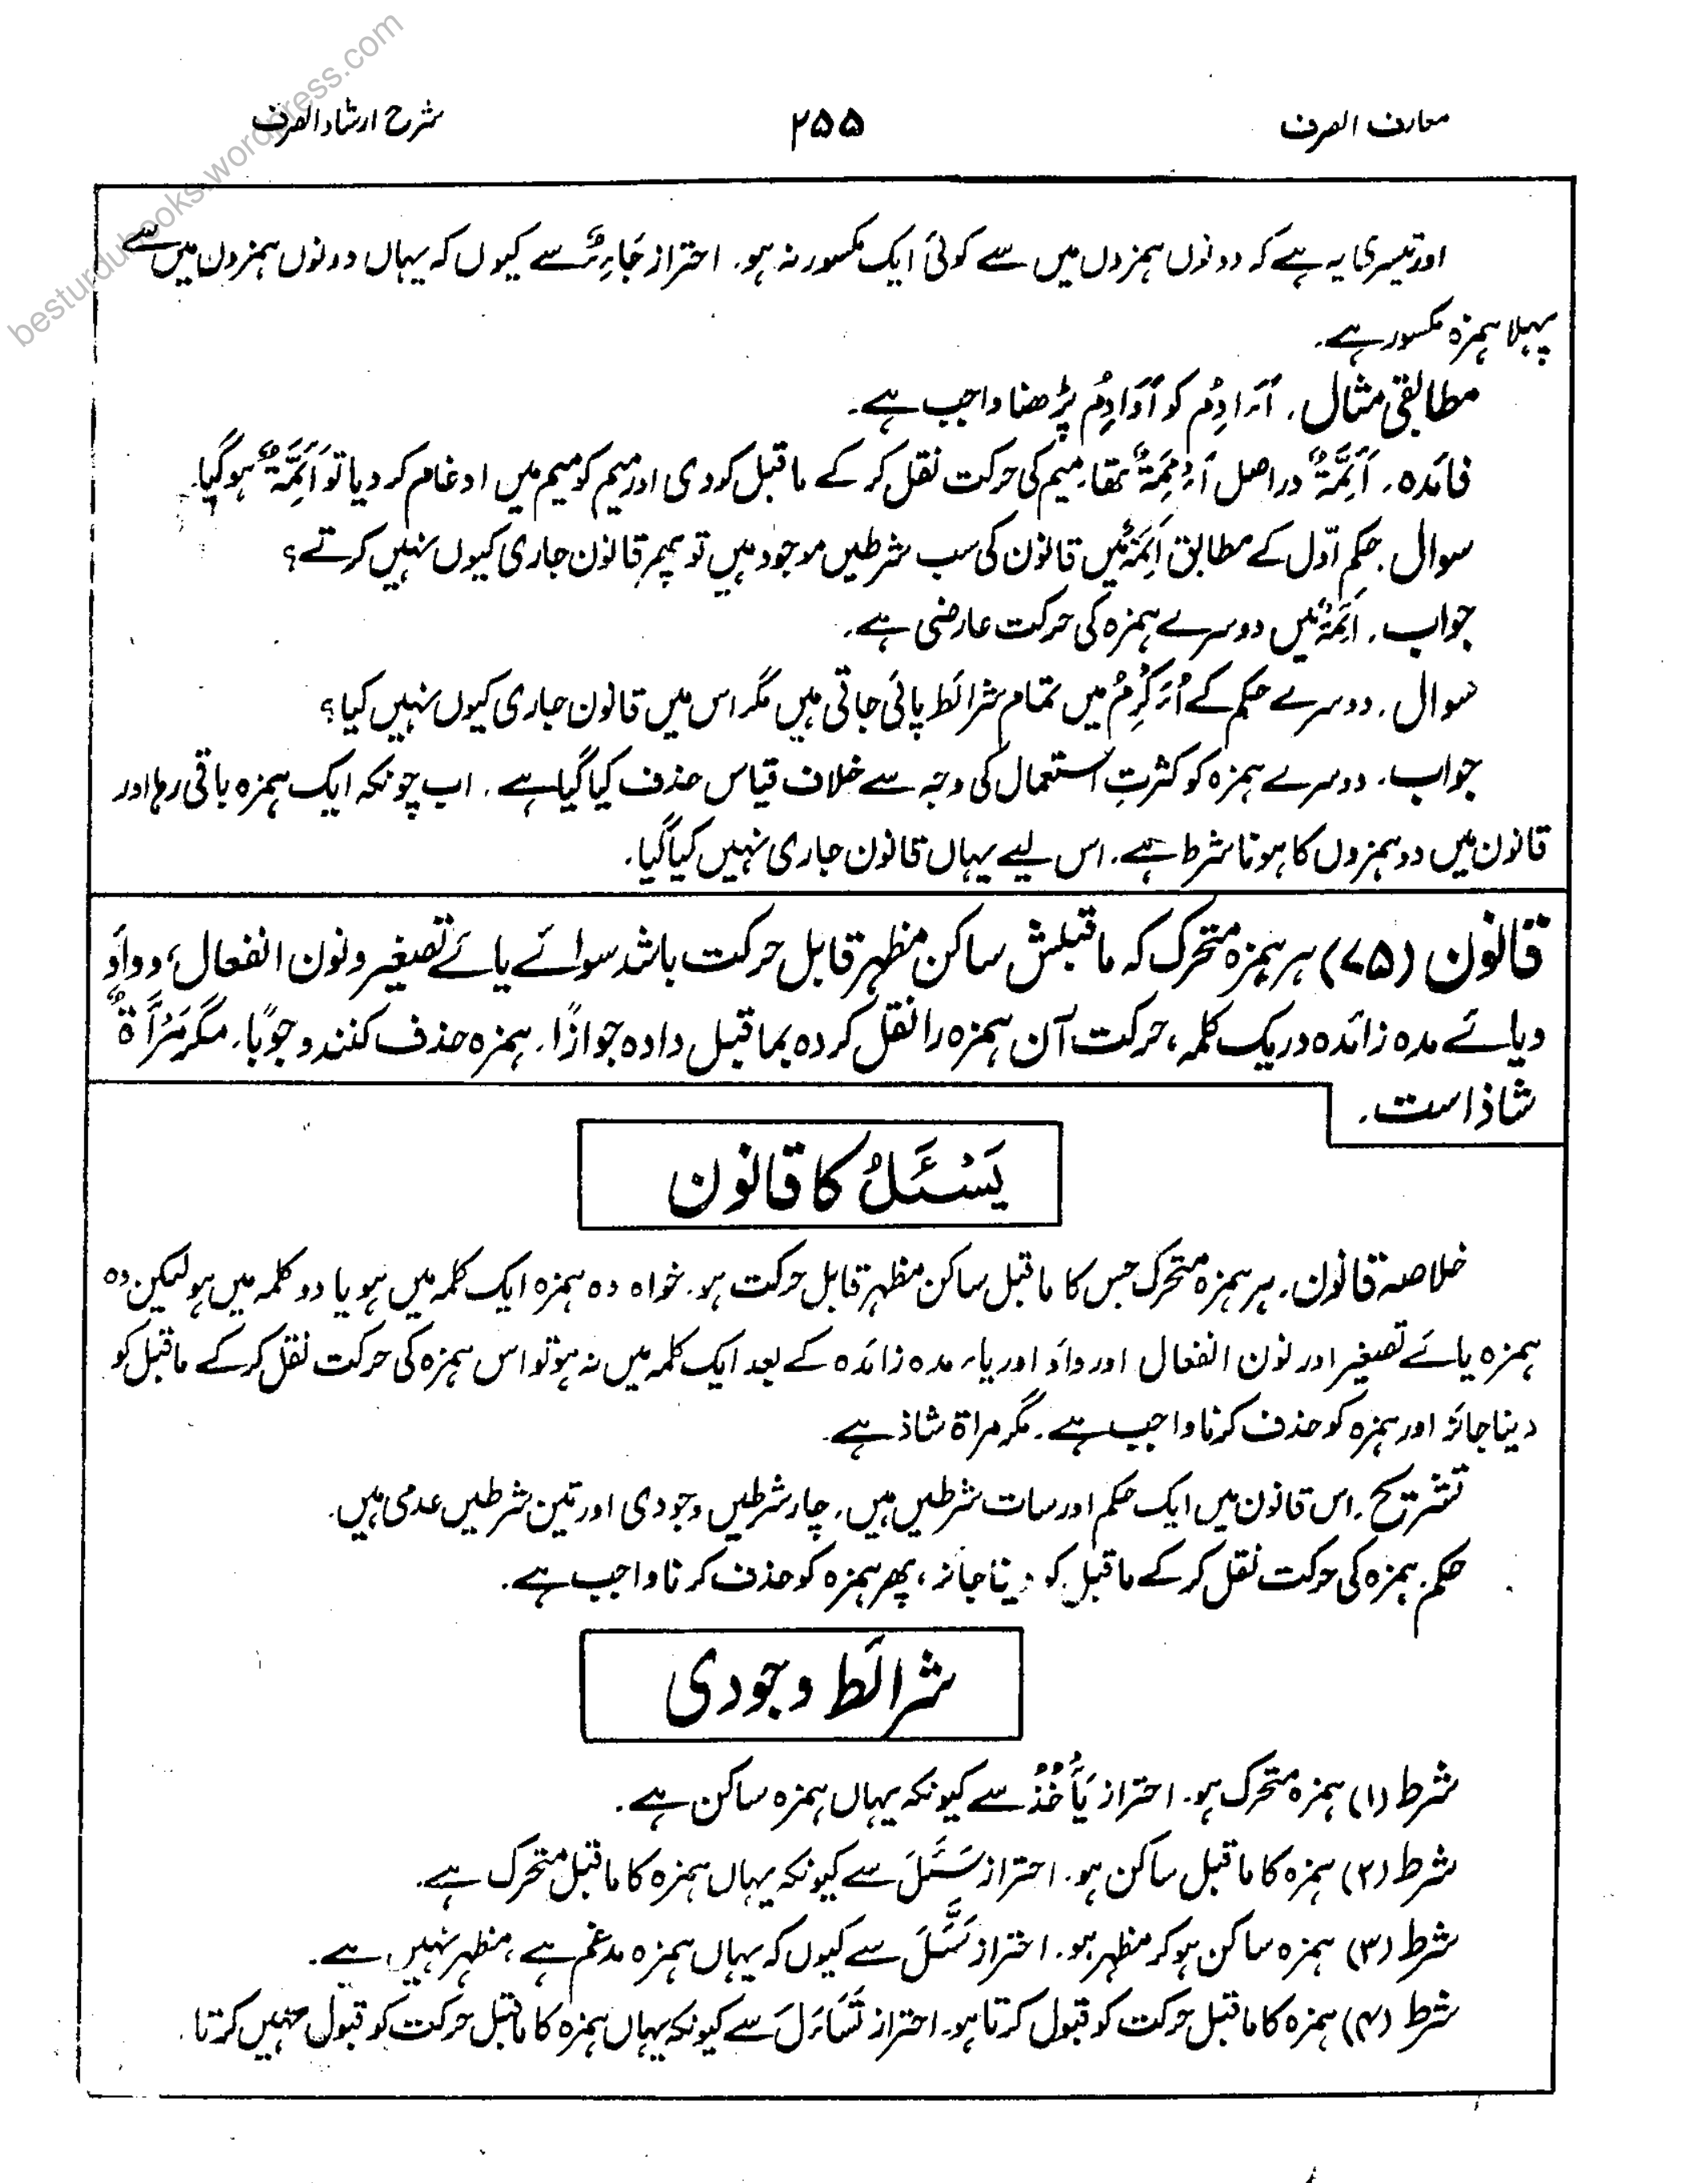 معارف الصرف ۲۵۵ شرح ارشاد الصرف
besturdubooks.wordpress.com
اور تیسری یہ ہے کہ دونوں ہمزوں میں سے کوئی ایک مکسور نہ ہو۔ احتراز جَاءِءٌ سے کیوں کہ یہاں دونوں ہمزوں میں سے
پہلا ہمزہ مکسور ہے۔
مطابقی مثال۔ أَءَادِمُ کو أَوَادِمُ پڑھنا واجب ہے۔
فائدہ۔ اَئِمَّةٌ دراصل اَءْمِمَةٌ تھا۔ میم کی حرکت نقل کر کے ماقبل کو دی اور میم کو میم میں ادغام کر دیا تو اَئِمَّةٌ ہو گیا۔
سوال۔ حکم اوّل کے مطابق اَئِمَّةٌ میں قانون کی سب شرطیں موجود ہیں تو پھر قانون جاری کیوں نہیں کرتے؟
جواب۔ اَئِمَّةٌ میں دوسرے ہمزہ کی حرکت عارضی ہے۔
سوال۔ دوسرے حکم کے اُءَكْرِمُ میں تمام شرائط پائی جاتی ہیں مگر اس میں قانون جاری کیوں نہیں کیا؟
جواب۔ دوسرے ہمزہ کو کثرتِ استعمال کی وجہ سے خلاف قیاس حذف کیا گیا ہے۔ اب چونکہ ایک ہمزہ باقی رہا اور
قانون میں دو ہمزوں کا ہونا شرط ہے۔ اس لیے یہاں قانون جاری نہیں کیا گیا۔
قانون (۷۵) ہر ہمزہ متحرک کہ ماقبلش ساکن مظہر قابل حرکت باشد سوائے یائے تصغیر و نون انفعال، و واؤ
و یائے مدہ زائدہ در یک کلمہ، حرکت آن ہمزہ را نقل کردہ بما قبل دادہ جوازًا۔ ہمزہ حذف کنند وجوبًا۔ مگر مَرْأَةٌ
شاذ است۔
یَسْئَلُ کا قانون
خلاصہ قانون۔ ہر ہمزہ متحرک جس کا ماقبل ساکن مظہر قابل حرکت ہو۔ خواہ وہ ہمزہ ایک کلمہ میں ہو یا دو کلمہ میں ہو لیکن وہ
ہمزہ یائے تصغیر اور نون انفعال اور واؤ اور یاء مدہ زائدہ کے بعد ایک کلمہ میں نہ ہو تو اس ہمزہ کی حرکت نقل کر کے ماقبل کو
دینا جائز اور ہمزہ کو حذف کرنا واجب ہے۔ مگر مراۃ شاذ ہے۔
تشریح۔ اس قانون میں ایک حکم اور سات شرطیں ہیں۔ چار شرطیں وجودی اور تین شرطیں عدمی ہیں۔
حکم۔ ہمزہ کی حرکت نقل کر کے ماقبل کو دینا جائز، پھر ہمزہ کو حذف کرنا واجب ہے۔
شرائط وجودی
شرط (۱) ہمزہ متحرک ہو۔ احتراز یَأْخُذُ سے کیونکہ یہاں ہمزہ ساکن ہے۔
شرط (۲) ہمزہ کا ماقبل ساکن ہو۔ احتراز سَئَلَ سے کیونکہ یہاں ہمزہ کا ماقبل متحرک ہے۔
شرط (۳) ہمزہ ساکن ہو کر مظہر ہو۔ احتراز سَئَّلَ سے کیوں کہ یہاں ہمزہ مدغم ہے، مظہر نہیں ہے۔
شرط (۴) ہمزہ کا ماقبل حرکت کو قبول کرتا ہو۔ احتراز تَسَاءَلَ سے کیونکہ یہاں ہمزہ کا ماقبل حرکت کو قبول نہیں کرتا۔